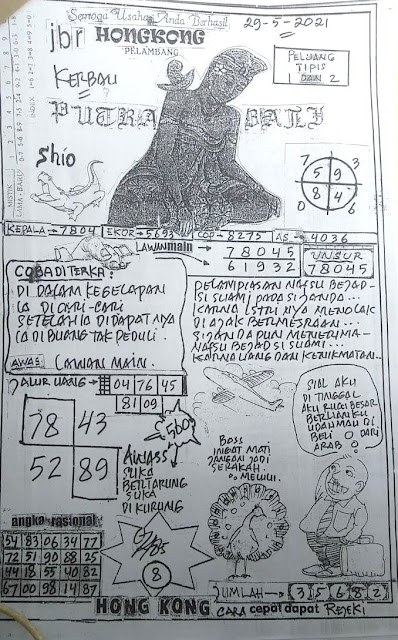 Semoga Usaha Anda Berhasil
29-5-2021
jbr HONGKONG
PELAMBANG
KERBAU
PELUANG
TIPIS
1 DAN 2
PUTRA BALI
Shio
7 3
5 9
8 4
0 6
KEPALA → 7804 EKOR → 5693 COP → 8275 AS → 4036
LAWAN main
78045
61932
UNSUR
78045
COBA DI TERKA!
DI DALAM KEGELAPAN
IA DI CARI-CARI
SETELAH IA DIDAPATNYA
IA DI BUANG TAK PEDULI.
AWAS LAWAN MAIN.
PELAMPIASAN NAFSU BEJAD-
SI SUAMI PADA SI JANDA...
KARNA ISTRI NYA MENOLAK
DI AJAK BERMESRAAN...
SI JANDA PUN MENERIMA-
NAFSU BEJAD SI SUAMI...
KARNA UANG DAN KENIKMATAN..
JALUR UANG → 04 76 45
81 09
78 43
52 89
500
AWASS
SUKA
BERTARUNG
SUKA
DI KURUNG
BOSS
INGAT MATI
JANGAN JADI
SERAKAH.
SIAL AKU
DI TINGGAL
AKU RUGI BESAR
BERLIANKU
UDAH MAU DI
BELI O DARI
ARAB O
angka rasional
54 83 06 34 77
72 51 90 88 25
44 18 55 40 82
67 00 98 14 87
8
JUMLAH → 3 5 6 8 2
HONG KONG CARA cepat dapat REJEKI